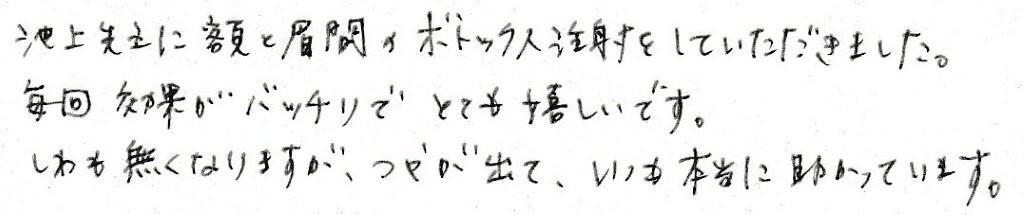 池上先生に額と眉間のボトックス注射をしていただきました。
毎回効果がバッチリでとても嬉しいです。
しわも無くなりますが、つやが出て、いつも本当に助かっています。